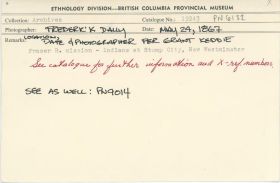 ETHNOLOGY DIVISION--BRITISH COLUMBIA PROVINCIAL MUSEUM
Collection: Archives Catalogue No.: PN 6182
Photographer: FREDERICK DALLY Date: MAY 24, 1867
Remarks: LOCATION, DATE & PHOTOGRAPHER PER GRANT KEDDIE
Fraser R. mission - Indians at Stump City, New Westminster
See catalogue for further information and X-ref number
SEE AS WELL: PN9014